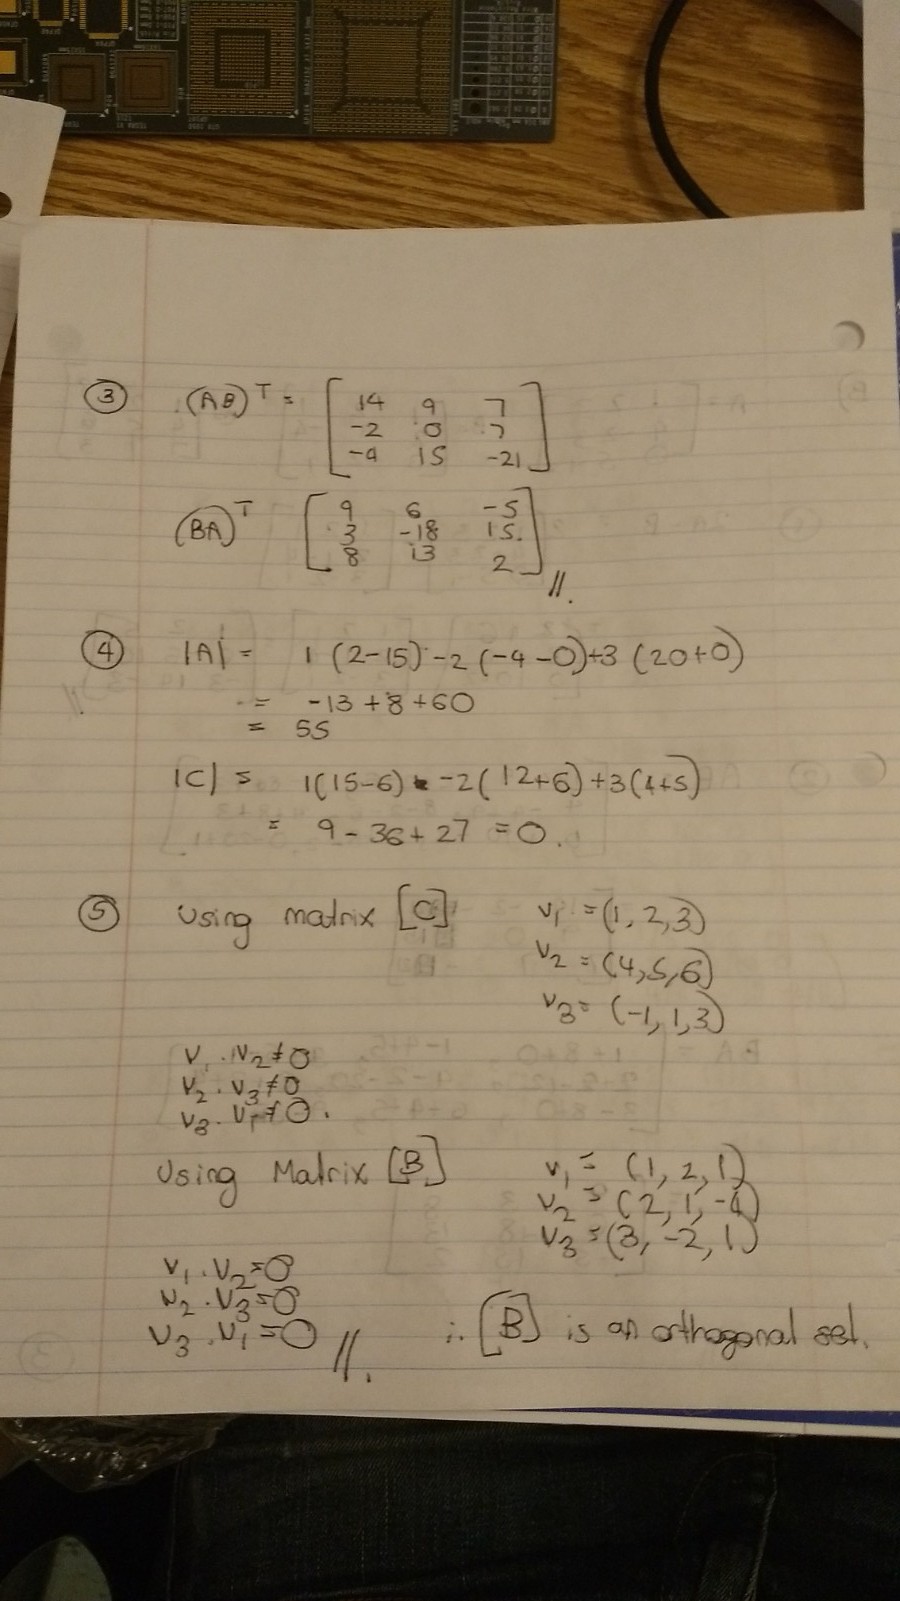 ③ (AB)ᵀ = [ 14 9 7
-2 0 7
-4 15 -21 ]
(BA)ᵀ [ 9 6 -5
3 -18 15.
8 13 2 ] //.
④ |A| = 1 (2-15) -2 (-4-0)+3 (20+0)
= -13 +8 +60
= 55
|C| = 1(15-6) -2(12+6)+3(4+5)
= 9-36+27 =0.
⑤ Using matrix [C] v₁ =(1, 2,3)
v₂ = (4,5,6)
v₃= (-1, 1,3)
v₁ . v₂ ≠0
v₂ . v₃ ≠0
v₃ . v₁ ≠0.
Using Matrix [B] v₁ = (1, 2, 1)
v₂ = (2, 1, -4)
v₃ =(3, -2, 1)
v₁ . v₂=0
v₂ . v₃=0
v₃ . v₁ =0 //. ∴ [B] is an orthogonal set.